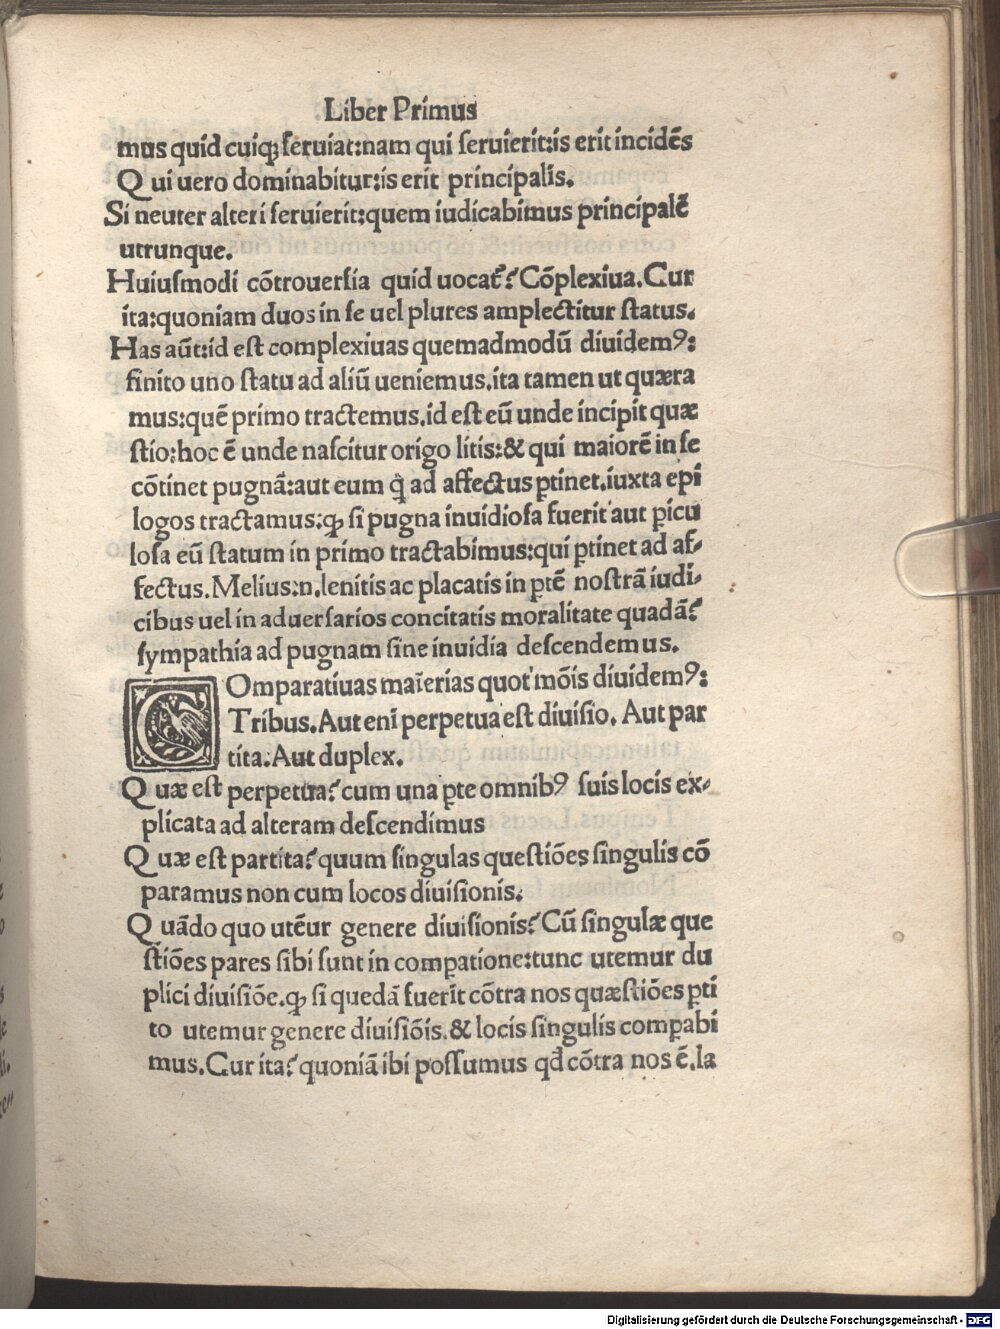 Liber Primus
mus quid cuiqꝫ ſeruiat:nam qui ſeruierit:is erit incidēs
Qui uero dominabitur:is erit principalis.
Si neuter alteri ſeruierit:quem iudicabimus principalē
utrunque.
Huiuſmodi cōtrouerſia quid uocat᷑? Cōplexiua. Cur
ita:quoniam duos in ſe uel plures amplectitur ſtatus.
Has aūt:id eſt complexiuas quemadmodū diuidemꝰ:
finito uno ſtatu ad aliū ueniemus.ita tamen ut quæra
mus:quē primo tractemus.id eſt eū unde incipit quæ
ſtio:hoc ē unde naſcitur origo litis:& qui maiorē in ſe
cōtinet pugnā:aut eum q̄ ad affectus ꝑtinet.iuxta epi
logos tractamus:ꝙ ſi pugna inuidioſa fuerit aut ꝑicu
loſa eū ſtatum in primo tractabimus:qui ꝑtinet ad af-
fectus. Melius:n.lenitis ac placatis in ꝑtē noſtrā iudi-
cibus uel in aduerſarios concitatis moralitate quadā?
ſympathia ad pugnam ſine inuidia deſcendemus.
Comparatiuas materias quot mōis diuidemꝰ:
Tribus. Aut eni perpetua eſt diuiſio. Aut par
tita. Aut duplex.
Quæ eſt perpetua? cum una ꝑte omnibꝰ ſuis locis ex-
plicata ad alteram deſcendimus
Quæ eſt partita? quum ſingulas queſtiōes ſingulis cō
paramus non cum locos diuiſionis.
Quādo quo utēur genere diuiſionis? Cū ſingulæ que
ſtiōes pares ſibi ſunt in comꝑatione:tunc utemur du
plici diuiſiōe.ꝙ ſi quedā fuerit cōtra nos quæſtiōes ꝑti
to utemur genere diuiſiōis.& locis ſingulis comꝑabi
mus. Cur ita? quoniā ibi poſſumus qđ cōtra nos ē.la
Digitalisierung gefördert durch die Deutsche Forschungsgemeinschaft - DFG